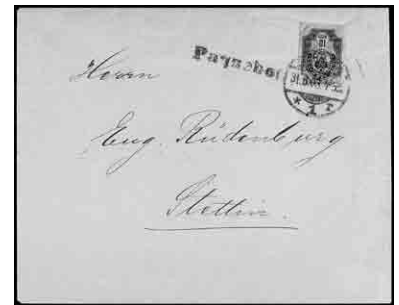 Paquebot
Herrn
Eug. Rüdenburg
Stettin.